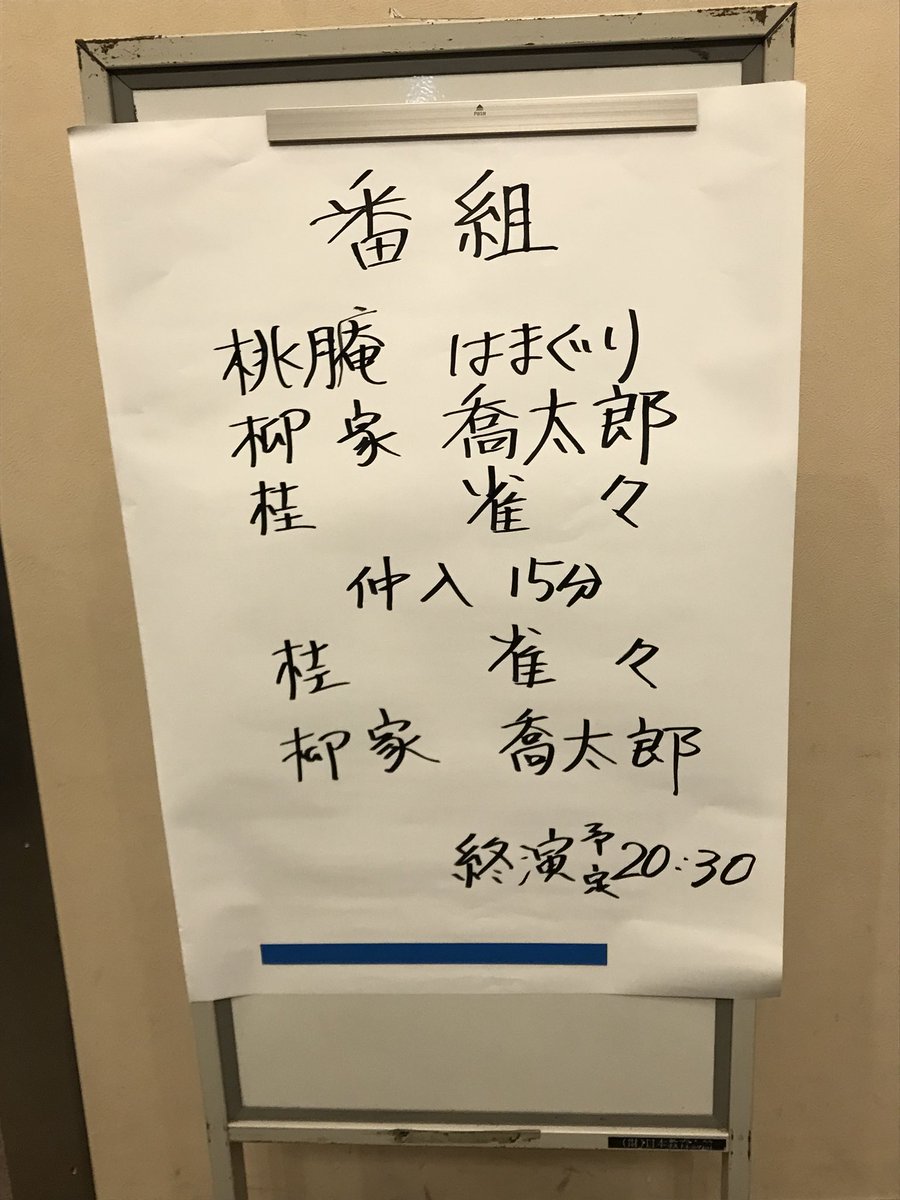 番組
桃月庵 はまぐり
柳家 喬太郎
桂 雀々
仲入 15分
桂 雀々
柳家 喬太郎
終演予定20:30